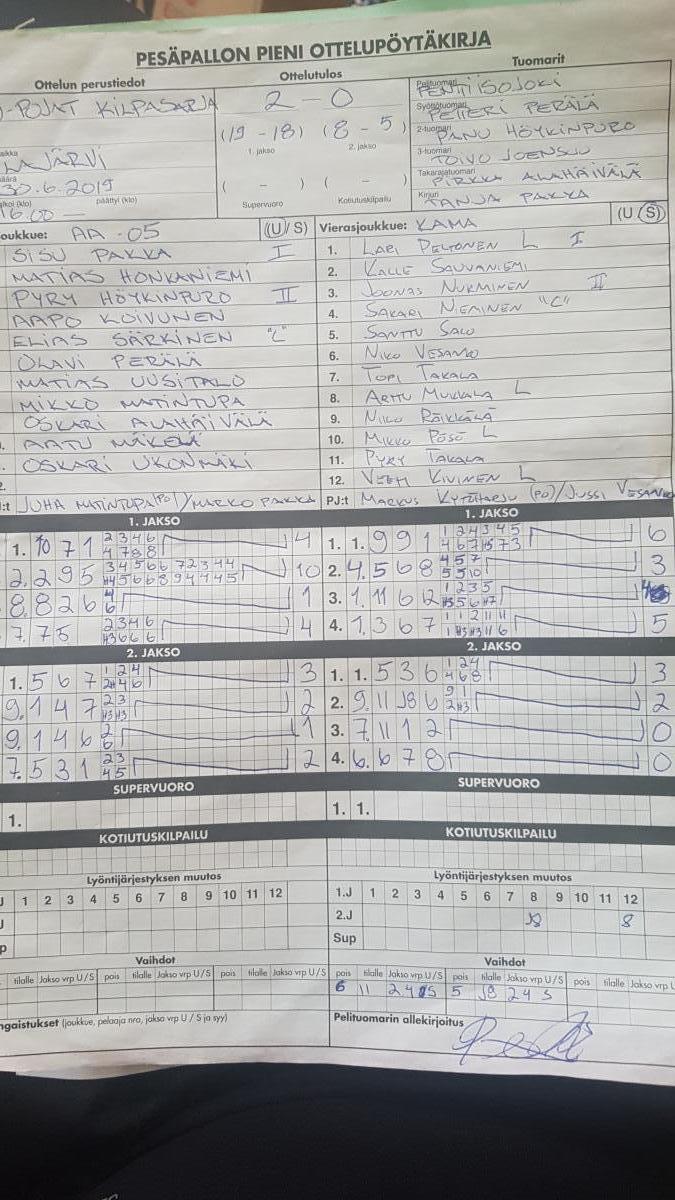 PESÄPALLON PIENI OTTELUPÖYTÄKIRJA
Ottelun perustiedot
Ottelutulos
Tuomarit
-POJAT KILPASARJA
2 - 0
Pelituomari PENTTI ISOJOKI
Syöttötuomari PETTERI PERÄLÄ
(19 - 18) (8 - 5)
2-tuomari PANU HÖYKINPURO
1. jakso
2. jakso
LAJÄRVI
3-tuomari TOIVO JOENSUU
Takarajatuomari PIRKKA ALAHÄIVÄLÄ
30.6.2019
( - ) ( - )
Kirjuri TANJA PAKKA
koi (klo)
päättyi (klo)
16.00 —
Supervuoro
Kotiutuskilpailu
oukkue: AA-05 (U/S)
Vierasjoukkue: KAMA (U S)
SISU PAKKA I
MATIAS HONKANIEMI
PYRY HÖYKINPURO II
AAPO KOIVUNEN
ELIAS SÄRKINEN "C"
OLAVI PERÄLÄ
MATIAS UUSITALO
MIKKO MATINTUPA
OSKARI ALAHÄIVÄLÄ
AATU MÄKELÄ
OSKARI UKONMÄKI
1. LARI PELTONEN L I
2. KALLE SAUVANIEMI
3. JOONAS NURMINEN II
4. SAKARI NIEMINEN "C"
5. SANTTU SALO
6. NIKO VESANKO
7. TOPI TAKALA
8. ARTTU MUKKALA L
9. NIILO RÖIKKÄLÄ
10. MIKKO PÖSÖ L
11. PYRY TAKALA
12. VEETI KIVINEN L
:t JUHA MATINTUPA (PO) / MARKO PAKKA
PJ:t MARKUS KYTÖHARJU (PO) / JUSSI VESANKO
1. JAKSO
1. JAKSO
1. 10 7 1 4
1. 1. 9 9 1 6
2. 2 9 5 10
2. 4. 5 6 8 3
8. 8 2 6 1
3. 1. 11 6 12
7. 7 5 4
4. 1. 3 6 7 5
2. JAKSO
2. JAKSO
1. 5 6 7 3
1. 1. 5 3 6 3
9. 1 4 7 2
2. 9. 11 J8 6 2
9. 1 4 6 1
3. 7. 11 1 2 0
7. 5 3 1 2
4. 6. 6 7 8 0
SUPERVUORO
SUPERVUORO
1.
1. 1.
KOTIUTUSKILPAILU
KOTIUTUSKILPAILU
Lyöntijärjestyksen muutos
Lyöntijärjestyksen muutos
J 1 2 3 4 5 6 7 8 9 10 11 12
1.J 1 2 3 4 5 6 7 8 9 10 11 12
J
2.J J8 8
p
Sup
Vaihdot
Vaihdot
tilalle Jakso vrp U/S pois tilalle Jakso vrp U/S pois tilalle Jakso vrp U/S
pois tilalle Jakso vrp U/S pois tilalle Jakso vrp U/S pois tilalle Jakso vrp U
6 11 5 J8 2 4 S
ngaistukset (joukkue, pelaaja nro, jakso vrp U / S ja syy)
Pelituomarin allekirjoitus